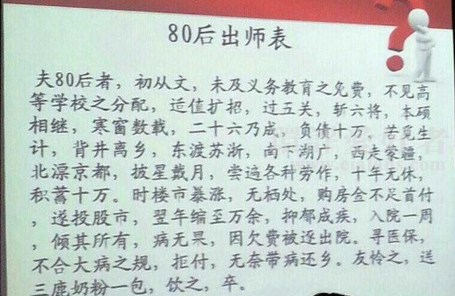 80后出师表
夫80后者，初从文，未及义务教育之免费，不见高
等学校之分配，适值扩招，过五关，斩六将，本硕
相继，寒窗数载，二十六乃成，负债十万。苦觅生
计，背井离乡，东渡苏浙，南下湖广，西走蒙疆，
北漂京都，披星戴月，尝遍各种劳作，十年无休，
积蓄十万。时楼市暴涨，无栖处，购房金不足首付
，遂投股市，翌年缩至万余，抑郁成疾，入院一周
，倾其所有，病无果，因欠费被逐出院。寻医保，
不合大病之规，拒付，无奈带病还乡。友怜之，送
三鹿奶粉一包，饮之，卒。